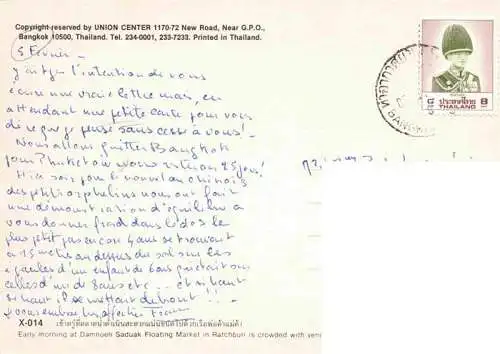 Copyright reserved by UNION CENTER 1170-72 New Road, Near G.P.O.,
Bangkok 10500, Thailand. Tel. 234-0001, 233-7233. Printed in Thailand.
5 Février -
l'intention de vous
écrire une vraie lettre mais, en
attendant une petite carte pour vous
dire que je pense sans cesse à vous!
Nous allons quitter Bangkok
pour Phuket où nous resterons 25 jours!
Hier soir pour le nouvel an chinois
des petits orphelins nous ont fait
une démonstration d'équilibre à
vous donner froid dans le dos le
plus petit pas encore 4 ans se trouvait
à 1,5 mètres au dessus du sol sur les
épaules d'un enfant de 6 ans qui était sur
celles d'un de 8 ans etc... et si haut
si haut il se mettait debout!!
je vous embrasse
ประเทศไทย
THAILAND
8
BANGKOK
X-014
Early morning at Damnoen Saduak Floating Market in Ratchburi is crowded with